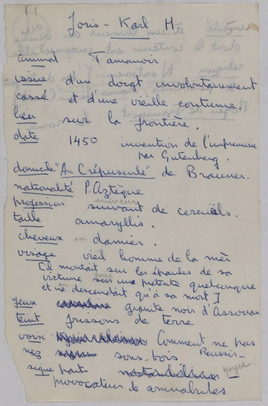 Joris-Karl H.
animal Tamanoir
issue d'un doigt involontairement
cassé et d'une vieille coutume.
lieu sur la frontière.
date 1450 invention de l'imprimerie
par Gutenberg.
domicile "Au Crépuscule" de Brauner.
nationalité P. Aztèque.
profession suivant de cercueils.
taille amaryllis.
cheveux en damier.
visage vieil homme de la mer
[il montait sur les épaules de sa
victime sous un prétexte quelconque
et ne descendait qu'à sa mort]
yeux granite noir d'Assouan
teint frissons de terre
voix Comment ne pas
nez sous-bois Réussir-
signe part
provocateur de